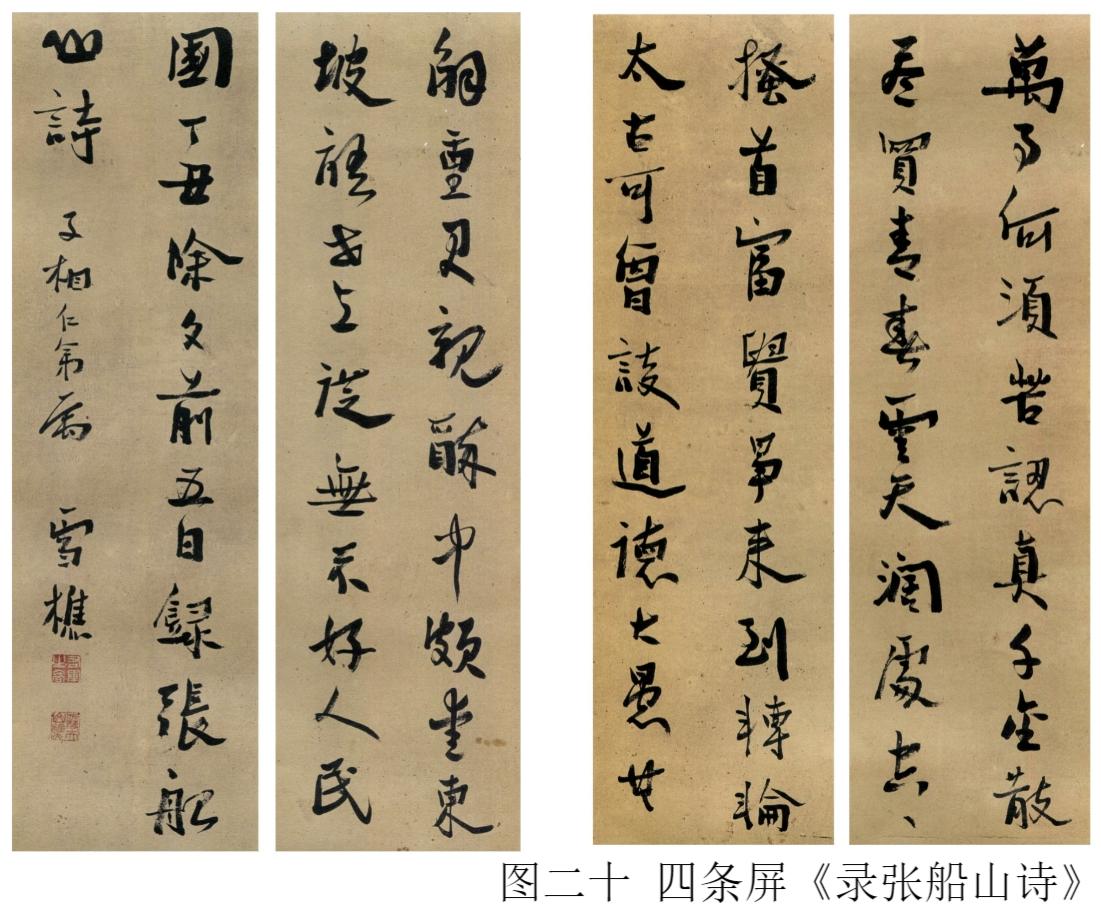 萬事何須苦認真千金散
盡買青春雲天闊處
搔首富貴爭來到轉輪
太古可曾談道德大愚
解重君親醉中頗愛東
坡語世上從無不好人民
國丁丑除夕前五日錄張船
山詩 子相仁弟屬 雪樵
图二十 四条屏《录张船山诗》